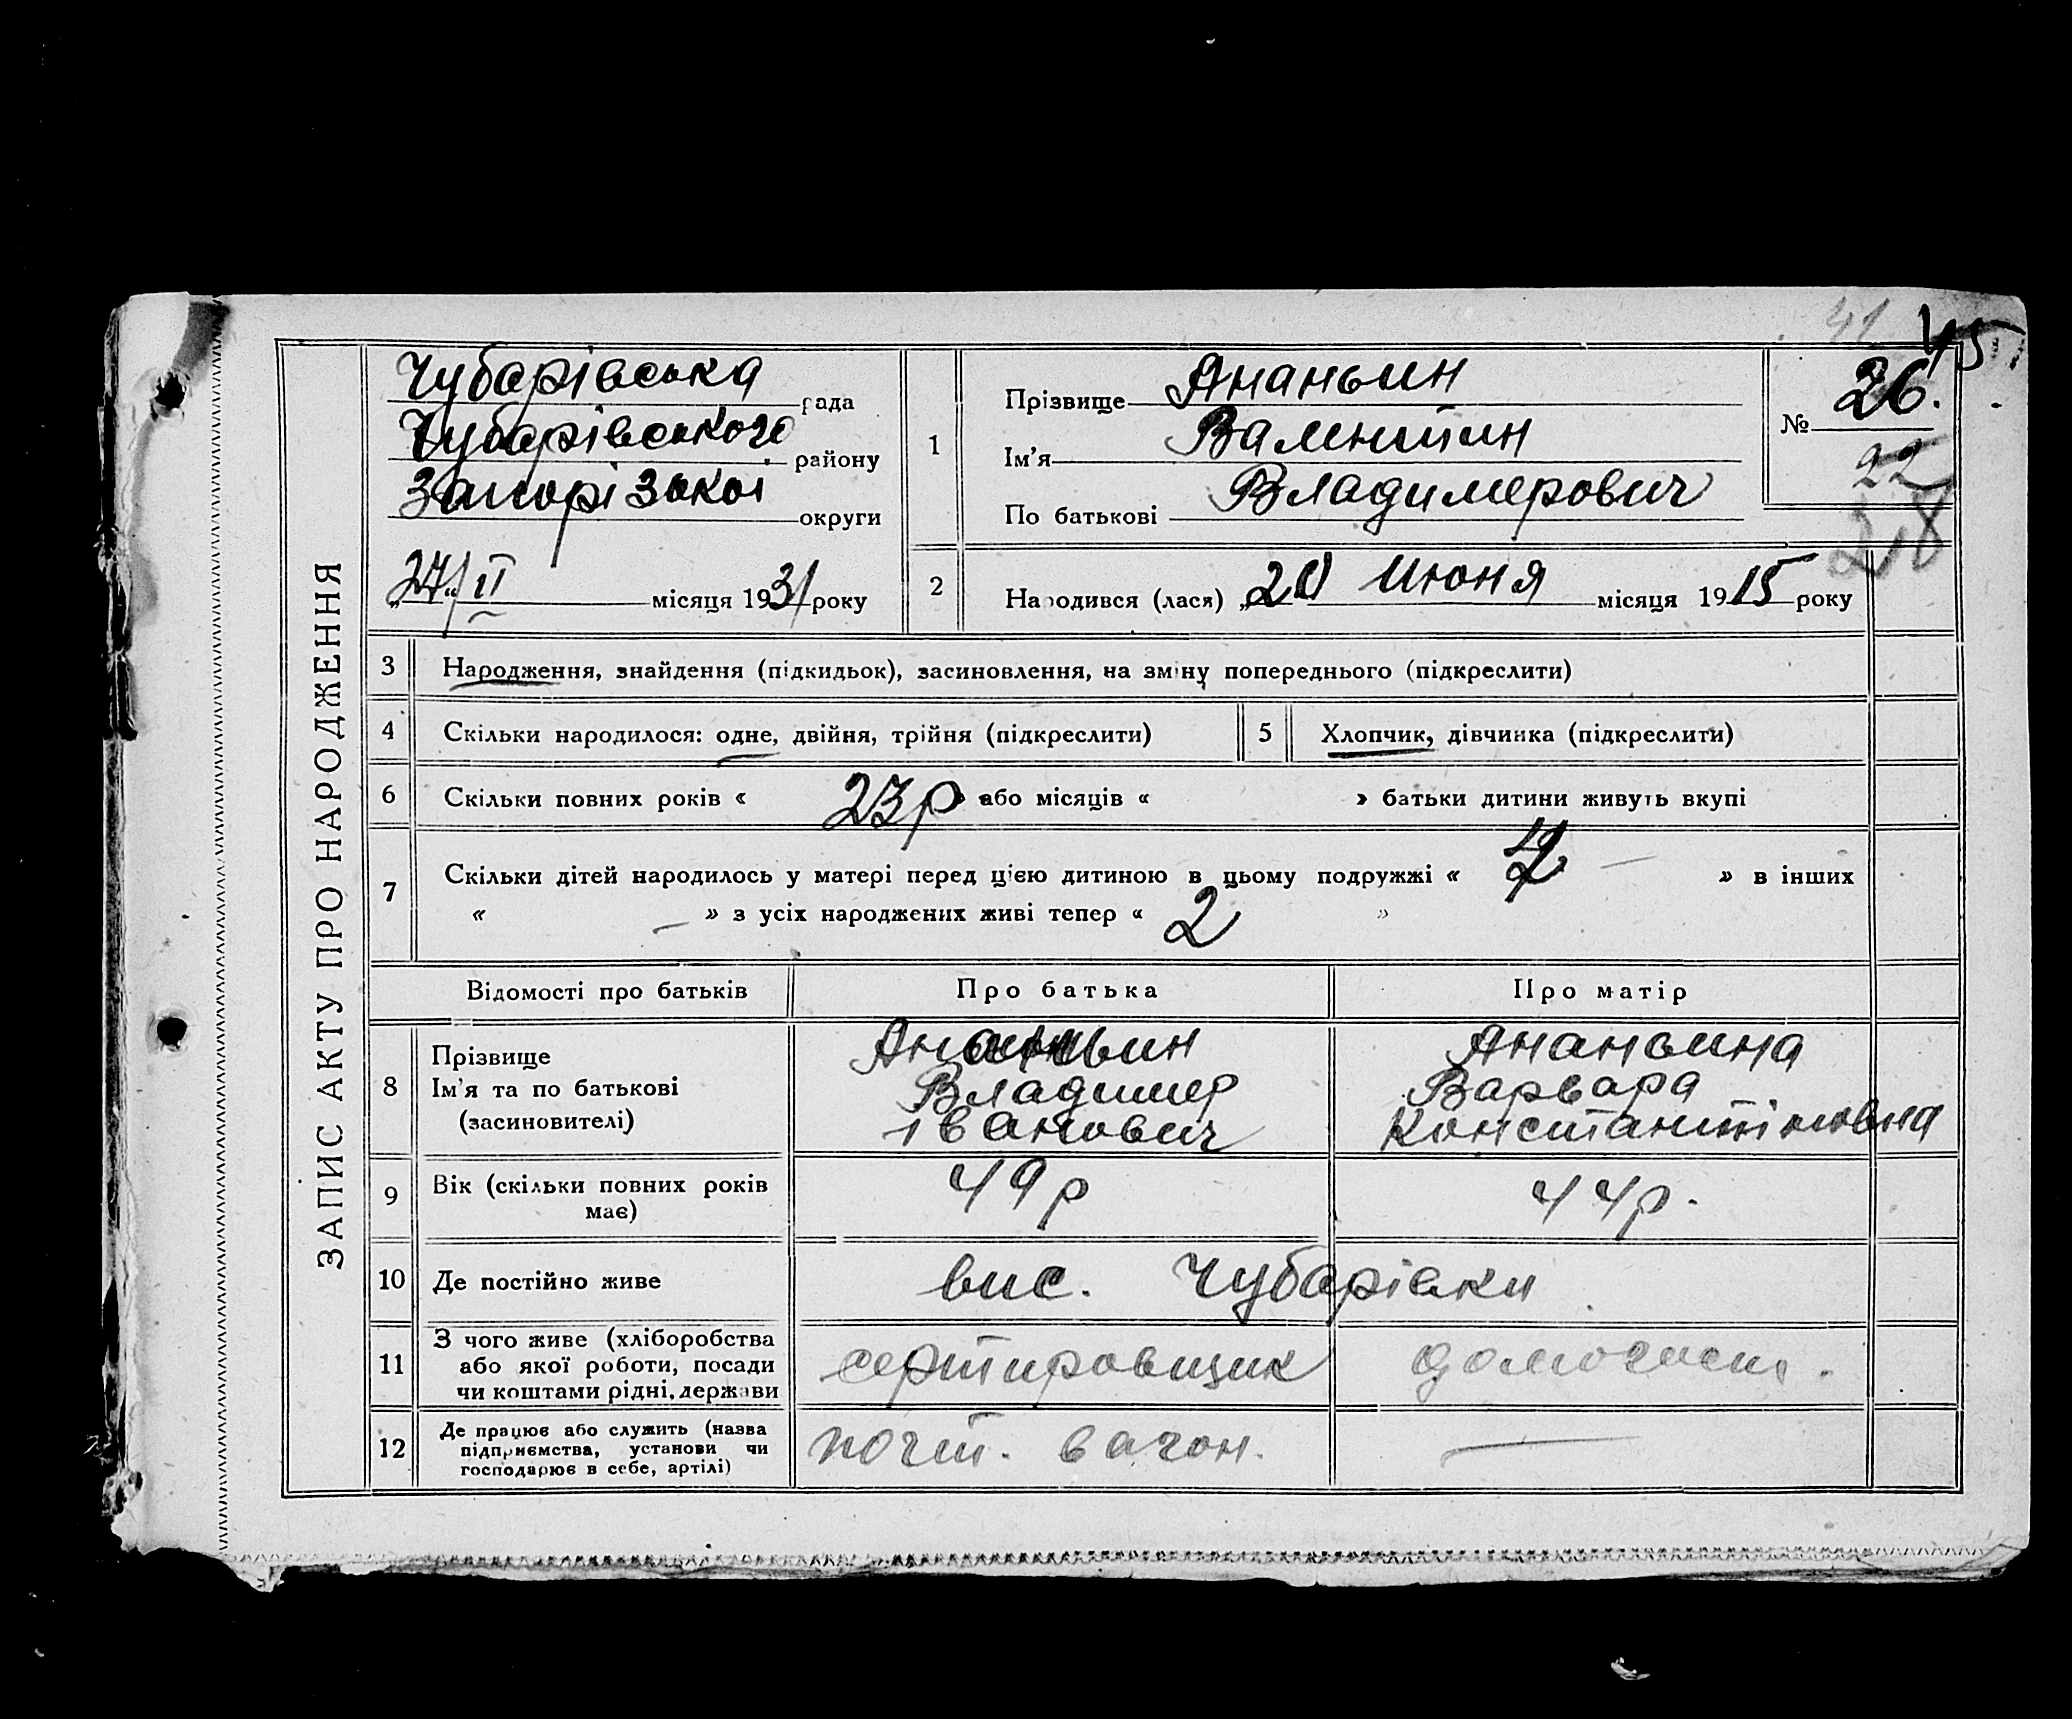 41
45
ЗАПИС АКТУ ПРО НАРОДЖЕННЯ
Чубарівська рада
Чубарівського району
Запорізокої округи
„27“ II місяця 1931 року
1
Прізвище Ананьин
Ім'я Валентин
По батькові Владимерович
№ 26.
22
218
2 Народився (лася) „20 Июня місяця 1915 року
3 Народження, знайдення (підкидьок), засиновлення, на зміну попереднього (підкреслити)
4 Скільки народилося: одне, двійня, трійня (підкреслити) 5 Хлопчик, дівчинка (підкреслити)
6 Скільки повних років « 23 р » або місяців « » батьки дитини живуть вкупі
7 Скільки дітей народилось у матері перед цією дитиною в цьому подружжі « — » в інших
« — » з усіх народжених живі тепер « 2 »
Відомості про батьків Про батька Про матір
8 Прізвище Ананьин Ананьина
Ім'я та по батькові Владимер Варвара
(засиновителі) Іванович Константіновна
9 Вік (скільки повних років має) 49 р 44 р.
10 Де постійно живе вис. Чубарівки
11 З чого живе (хліборобства
або якої роботи, посади сортировщик
чи коштами рідні, держави
12 Де працює або служить (назва
підприємства, установи чи почт. вагон. —
господарює в себе, артілі)